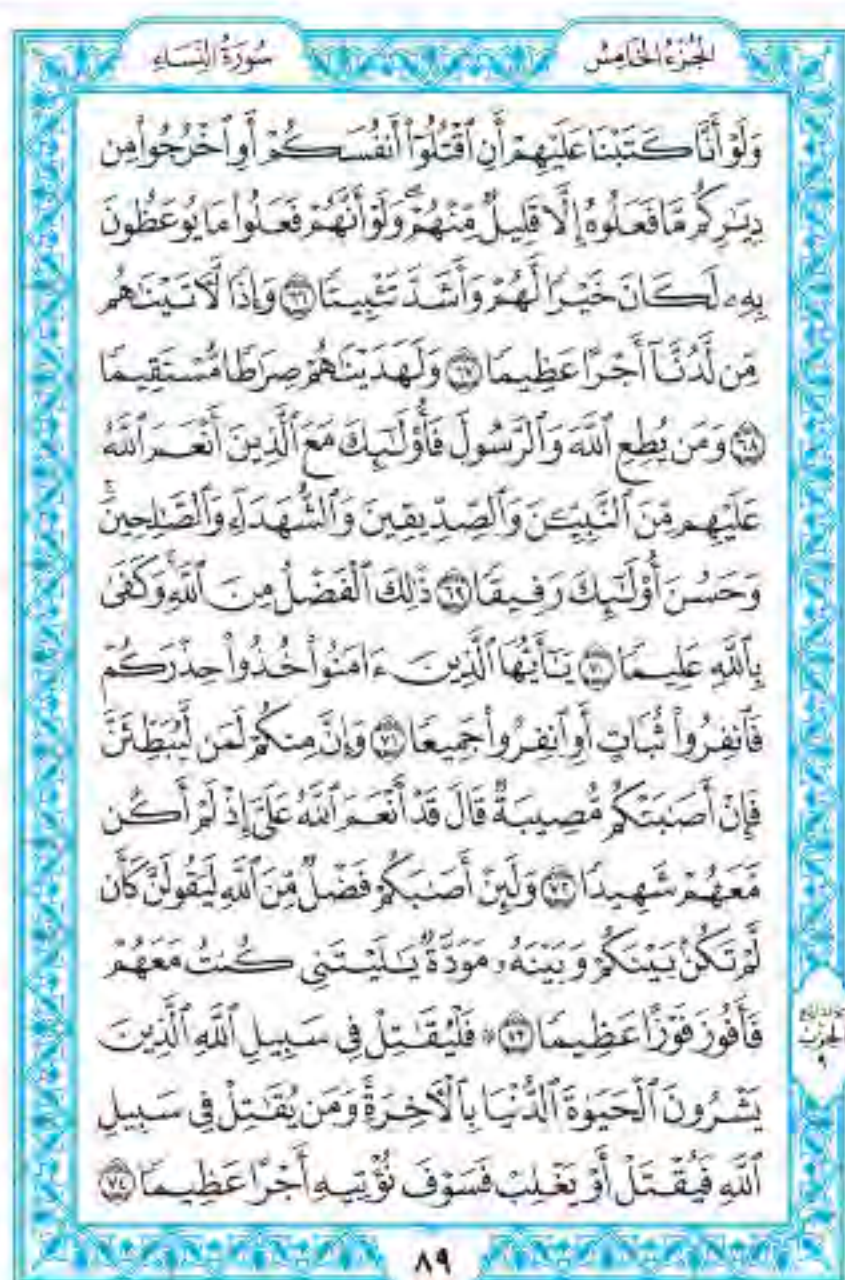 سُورَةُ النِّسَاءِ
الجُزْءُ الخَامِسُ
وَلَوْ أَنَّا كَتَبْنَا عَلَيْهِمْ أَنِ ٱقْتُلُوٓا۟ أَنفُسَكُمْ أَوِ ٱخْرُجُوا۟ مِن
دِيَٰرِكُم مَّا فَعَلُوهُ إِلَّا قَلِيلٌ مِّنْهُمْ ۖ وَلَوْ أَنَّهُمْ فَعَلُوا۟ مَا يُوعَظُونَ
بِهِۦ لَكَانَ خَيْرًا لَّهُمْ وَأَشَدَّ تَثْبِيتًا ٦٦ وَإِذًا لَّءَاتَيْنَٰهُم
مِّن لَّدُنَّآ أَجْرًا عَظِيمًا ٦٧ وَلَهَدَيْنَٰهُمْ صِرَٰطًا مُّسْتَقِيمًا
٦٨ وَمَن يُطِعِ ٱللَّهَ وَٱلرَّسُولَ فَأُو۟لَٰٓئِكَ مَعَ ٱلَّذِينَ أَنْعَمَ ٱللَّهُ
عَلَيْهِم مِّنَ ٱلنَّبِيِّـۧنَ وَٱلصِّدِّيقِينَ وَٱلشُّهَدَآءِ وَٱلصَّٰلِحِينَ ۚ
وَحَسُنَ أُو۟لَٰٓئِكَ رَفِيقًا ٦٩ ذَٰلِكَ ٱلْفَضْلُ مِنَ ٱللَّهِ ۚ وَكَفَىٰ
بِٱللَّهِ عَلِيمًا ٧٠ يَٰٓأَيُّهَا ٱلَّذِينَ ءَامَنُوا۟ خُذُوا۟ حِذْرَكُمْ
فَٱنفِرُوا۟ ثُبَاتٍ أَوِ ٱنفِرُوا۟ جَمِيعًا ٧١ وَإِنَّ مِنكُمْ لَمَن لَّيُبَطِّئَنَّ
فَإِنْ أَصَٰبَتْكُم مُّصِيبَةٌ قَالَ قَدْ أَنْعَمَ ٱللَّهُ عَلَىَّ إِذْ لَمْ أَكُن
مَّعَهُمْ شَهِيدًا ٧٢ وَلَئِنْ أَصَٰبَكُمْ فَضْلٌ مِّنَ ٱللَّهِ لَيَقُولَنَّ كَأَن
لَّمْ تَكُنۢ بَيْنَكُمْ وَبَيْنَهُۥ مَوَدَّةٌ يَٰلَيْتَنِى كُنتُ مَعَهُمْ
فَأَفُوزَ فَوْزًا عَظِيمًا ٧٣ ۞ فَلْيُقَٰتِلْ فِى سَبِيلِ ٱللَّهِ ٱلَّذِينَ
يَشْرُونَ ٱلْحَيَوٰةَ ٱلدُّنْيَا بِٱلْءَاخِرَةِ ۚ وَمَن يُقَٰتِلْ فِى سَبِيلِ
ٱللَّهِ فَيُقْتَلْ أَوْ يَغْلِبْ فَسَوْفَ نُؤْتِيهِ أَجْرًا عَظِيمًا ٧٤
الحزب
٩
٨٩